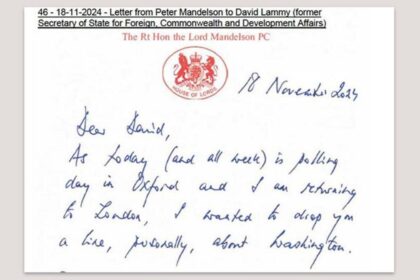 46 - 18-11-2024 - Letter from Peter Mandelson to David Lammy (former
Secretary of State for Foreign, Commonwealth and Development Affairs)
The Rt Hon the Lord Mandelson PC
HOUSE OF LORDS
18 November 2024
Dear David,
As today (and all week) is polling
day in Oxford and I am returning
to London, I wanted to drop you
a line, personally, about Washington.